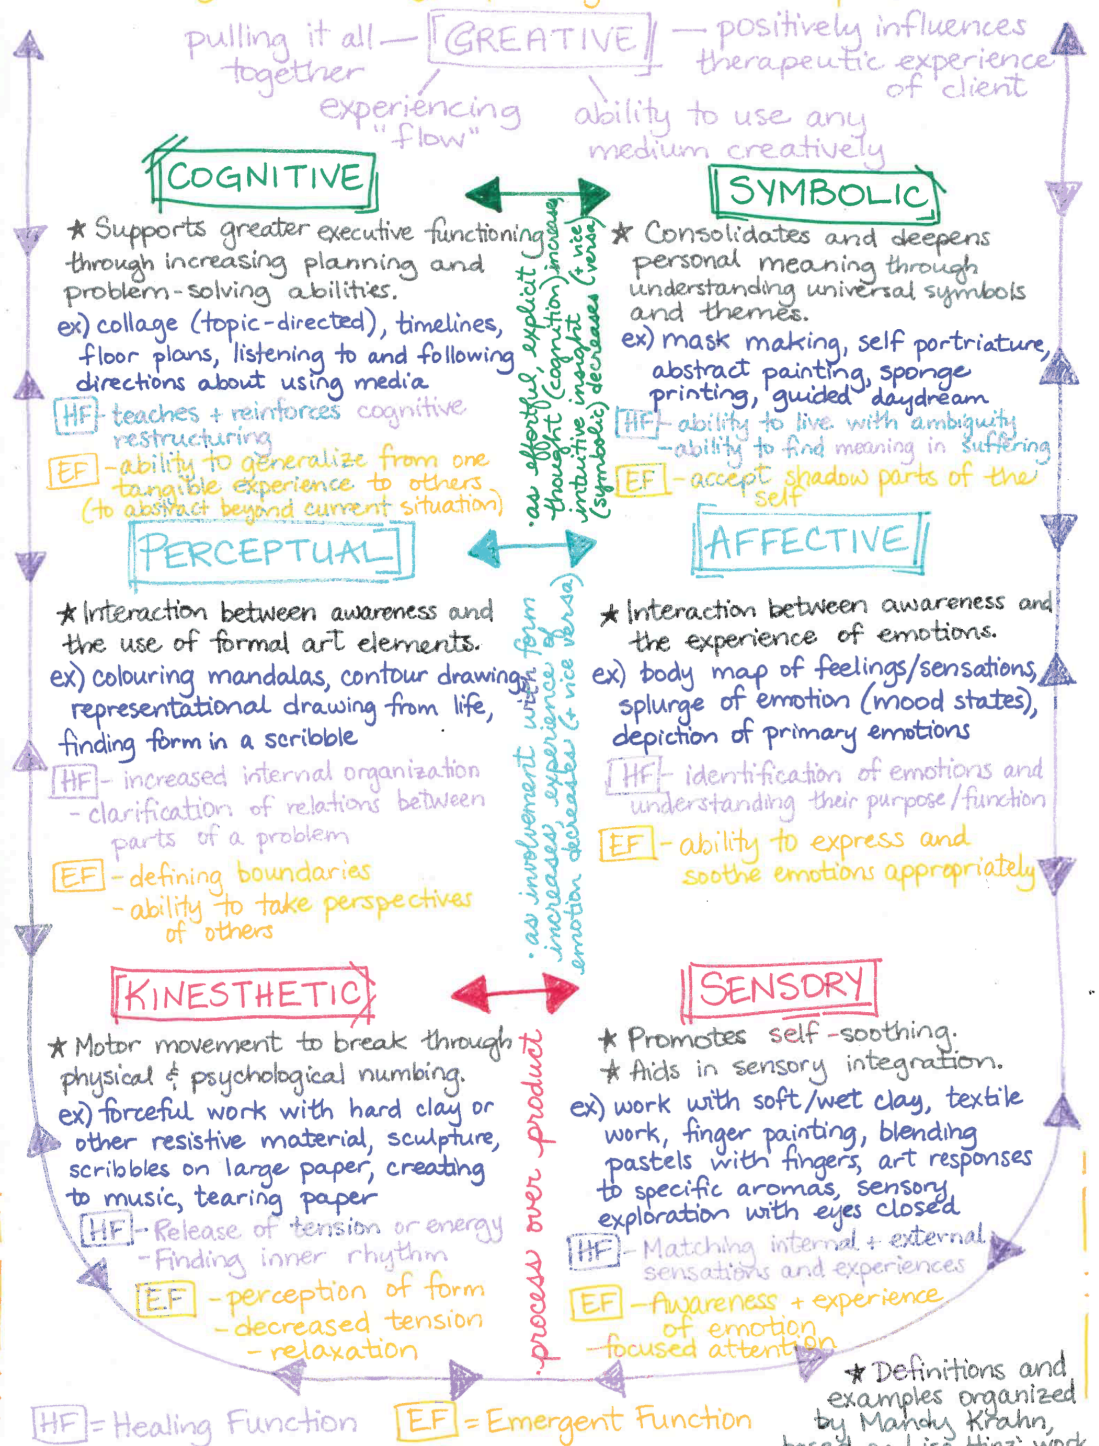 pulling it all — CREATIVE — positively influences
together
therapeutic experience
of client
experiencing
"flow"
ability to use any
medium creatively
COGNITIVE
★ Supports greater executive functioning
through increasing planning and
problem-solving abilities.
ex) collage (topic-directed), timelines,
floor plans, listening to and following
directions about using media
HF - teaches + reinforces cognitive
restructuring
EF - ability to generalize from one
tangible experience to others
(to abstract beyond current situation)
• as effortful, explicit
thought (cognition) increases,
intuitive insight (+ vice
(symbolic) decreases versa)
SYMBOLIC
★ Consolidates and deepens
personal meaning through
understanding universal symbols
and themes.
ex) mask making, self portriature,
abstract painting, sponge
printing, guided daydream
HF - ability to live with ambiguity
- ability to find meaning in suffering
EF - accept shadow parts of the
self
PERCEPTUAL
★ Interaction between awareness and
the use of formal art elements.
ex) colouring mandalas, contour drawing,
representational drawing from life,
finding form in a scribble
HF - increased internal organization
- clarification of relations between
parts of a problem
EF - defining boundaries
- ability to take perspectives
of others
• as involvement with form
increases, experience of
emotion decreases (+ vice versa)
AFFECTIVE
★ Interaction between awareness and
the experience of emotions.
ex) body map of feelings/sensations,
splurge of emotion (mood states),
depiction of primary emotions
HF - identification of emotions and
understanding their purpose/function
EF - ability to express and
soothe emotions appropriately
KINESTHETIC
★ Motor movement to break through
physical & psychological numbing.
ex) forceful work with hard clay or
other resistive material, sculpture,
scribbles on large paper, creating
to music, tearing paper
HF - Release of tension or energy
- Finding inner rhythm
EF - perception of form
- decreased tension
- relaxation
• process over product
SENSORY
★ Promotes self-soothing.
★ Aids in sensory integration.
ex) work with soft/wet clay, textile
work, finger painting, blending
pastels with fingers, art responses
to specific aromas, sensory
exploration with eyes closed
HF - Matching internal + external
sensations and experiences
EF - Awareness + experience
of emotion
- focused attention
HF = Healing Function
EF = Emergent Function
★ Definitions and
examples organized
by Mandy Krahn,
based on Lisa Hinz' work